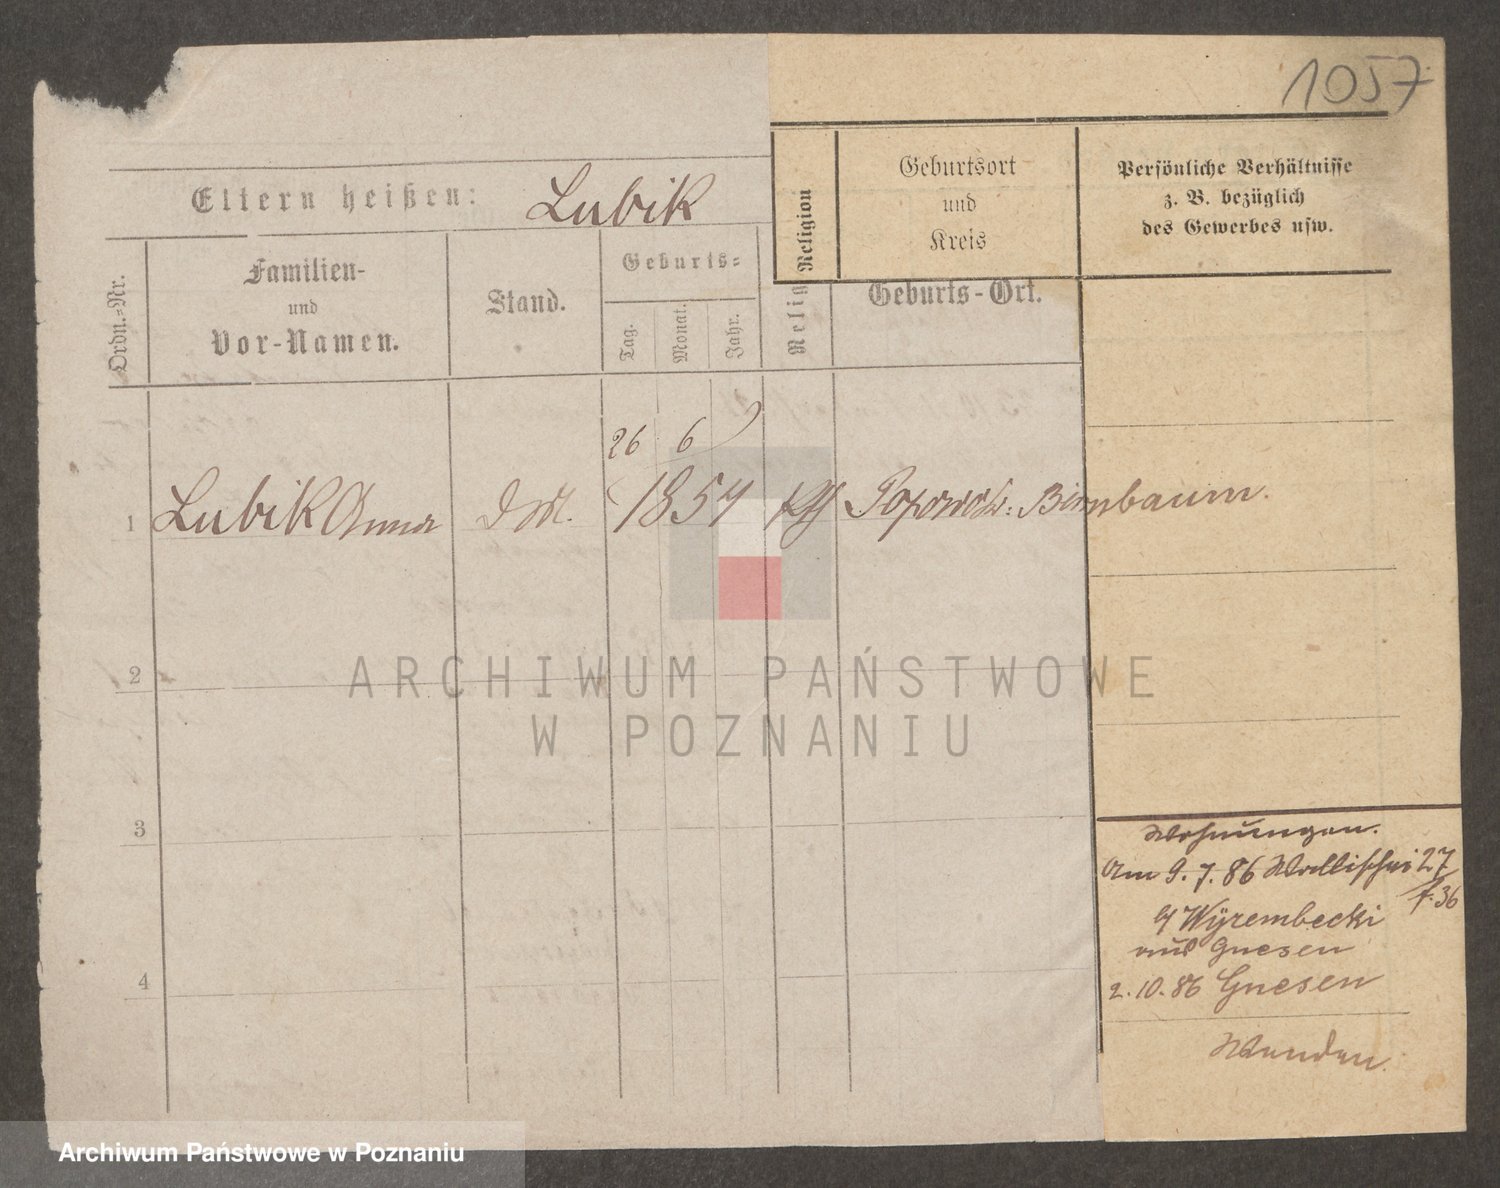 1057
Eltern heißen: Lubik
Ordn.=Nr.
Familien-
und
Vor-Namen.
Stand.
Geburts=
Tag.
Monat.
Jahr.
Religion
Relig
Geburtsort
und
Kreis
Geburts-Ort.
Persönliche Verhältnisse
z. B. bezüglich
des Gewerbes usw.
26 6
1 Lubik Anna 1857 Birnbaum.
2
3
4
ARCHIWUM PAŃSTWOWE
W POZNANIU
Wohnungen.
Am 9. 7. 86 Wallischei 27
f. 36
Wÿrembecki
aus Gnesen
2. 10. 86 Gnesen
Archiwum Państwowe w Poznaniu